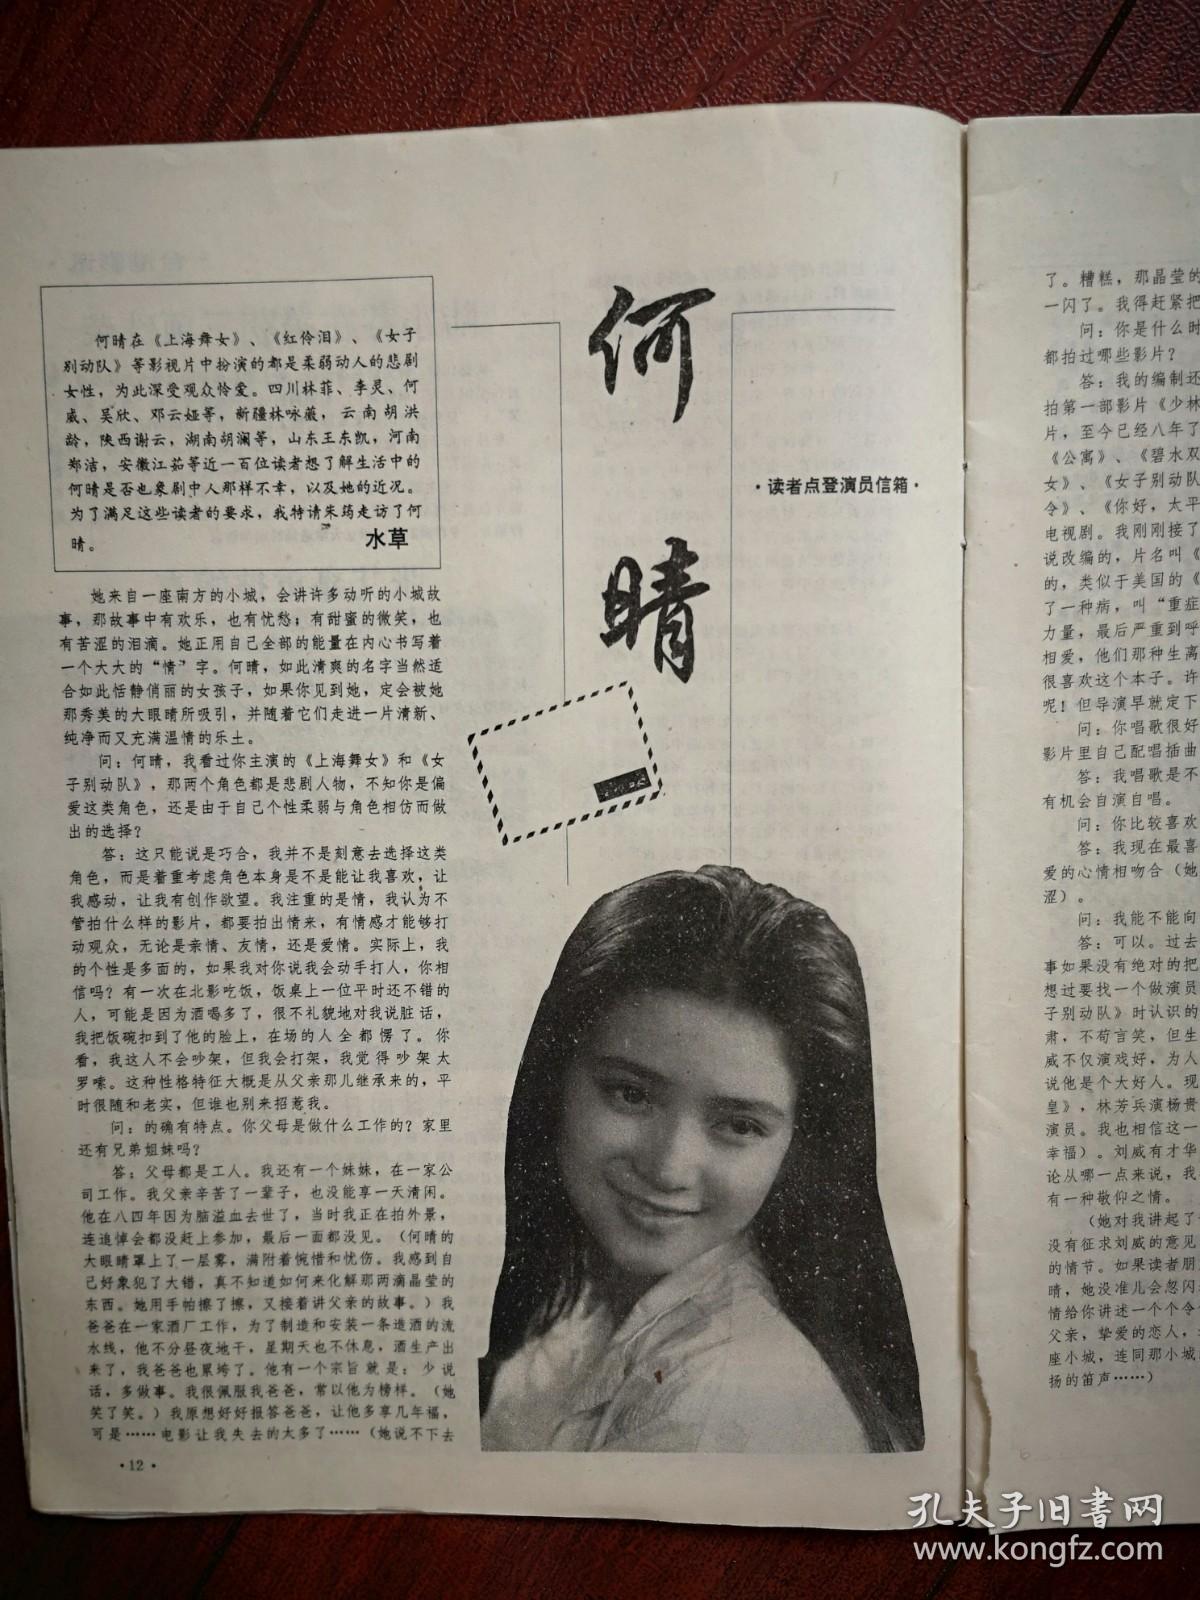 何晴
·读者点登演员信箱·
何晴在《上海舞女》、《红伶泪》、《女子
别动队》等影视片中扮演的都是柔弱动人的悲剧
女性，为此深受观众怜爱。四川林菲、李灵、何
威、吴欣、邓云娅等，新疆林咏薇，云南胡洪
龄，陕西谢云，湖南胡澜等，山东王东凯，河南
郑洁，安徽江茹等近一百位读者想了解生活中的
何晴是否也象剧中人那样不幸，以及她的近况。
为了满足这些读者的要求，我特请朱筠走访了何
晴。
水草
她来自一座南方的小城，会讲许多动听的小城故
事，那故事中有欢乐，也有忧愁；有甜蜜的微笑，也
有苦涩的泪滴。她正用自己全部的能量在内心书写着
一个大大的“情”字。何晴，如此清爽的名字当然适
合如此恬静俏丽的女孩子，如果你见到她，定会被她
那秀美的大眼睛所吸引，并随着它们走进一片清新、
纯净而又充满温情的乐土。
问：何晴，我看过你主演的《上海舞女》和《女
子别动队》，那两个角色都是悲剧人物，不知你是偏
爱这类角色，还是由于自己个性柔弱与角色相仿而做
出的选择？
答：这只能说是巧合，我并不是刻意去选择这类
角色，而是着重考虑角色本身是不是能让我喜欢，让
我感动，让我有创作欲望。我注重的是情，我认为不
管拍什么样的影片，都要拍出情来，有情感才能够打
动观众，无论是亲情、友情，还是爱情。实际上，我
的个性是多面的，如果我对你说我会动手打人，你相
信吗？有一次在北影吃饭，饭桌上一位平时还不错的
人，可能是因为酒喝多了，很不礼貌地对我说脏话，
我把饭碗扣到了他的脸上，在场的人全都愣了。你
看，我这人不会吵架，但我会打架，我觉得吵架太
罗嗦。这种性格特征大概是从父亲那儿继承来的，平
时很随和老实，但谁也别来招惹我。
问：的确有特点。你父母是做什么工作的？家里
还有兄弟姐妹吗？
答：父母都是工人。我还有一个妹妹，在一家公
司工作。我父亲辛苦了一辈子，也没能享一天清闲。
他在八四年因为脑溢血去世了，当时我正在拍外景，
连追悼会都没赶上参加，最后一面都没见。（何晴的
大眼睛罩上了一层雾，满附着惋惜和忧伤。我感到自
己好象犯了大错，真不知道如何来化解那两滴晶莹的
东西。她用手帕擦了擦，又接着讲父亲的故事。）我
爸爸在一家酒厂工作，为了制造和安装一条造酒的流
水线，他不分昼夜地干，星期天也不休息，酒生产出
来了，我爸爸也累垮了。他有一个宗旨就是：少说
话，多做事。我很佩服我爸爸，常以他为榜样。（她
笑了笑。）我原想好好报答爸爸，让他多享几年福，
可是……电影让我失去的太多了……（她说不下去
·12·
了。糟糕，那晶莹的
一闪了。我得赶紧把
问：你是什么时
都拍过哪些影片？
答：我的编制还
拍第一部影片《少林
片，至今已经八年了
《公寓》、《碧水双
女》、《女子别动队
令》、《你好，太平
电视剧。我刚刚接了
说改编的，片名叫《
的，类似于美国的《
了一种病，叫“重症
力量，最后严重到呼
相爱，他们那种生离
很喜欢这个本子。许
呢！但导演早就定下
问：你唱歌很好
影片里自己配唱插曲
答：我唱歌是不
有机会自演自唱。
问：你比较喜欢
答：我现在最喜
爱的心情相吻合（她
涩）。
问：我能不能向
答：可以。过去
事如果没有绝对的把
想过要找一个做演员
子别动队》时认识的
肃，不苟言笑，但生
威不仅演戏好，为人
说他是个大好人。现
皇》，林芳兵演杨贵
演员。我也相信这一
幸福）。刘威有才华
论从哪一点来说，我
有一种敬仰之情。
（她对我讲起了
没有征求刘威的意见
的情节。如果读者朋
晴，她没准儿会忽闪
情给你讲述一个个令
父亲，挚爱的恋人，
座小城，连同那小城
扬的笛声……）
孔夫子旧书网
www.kongfz.com